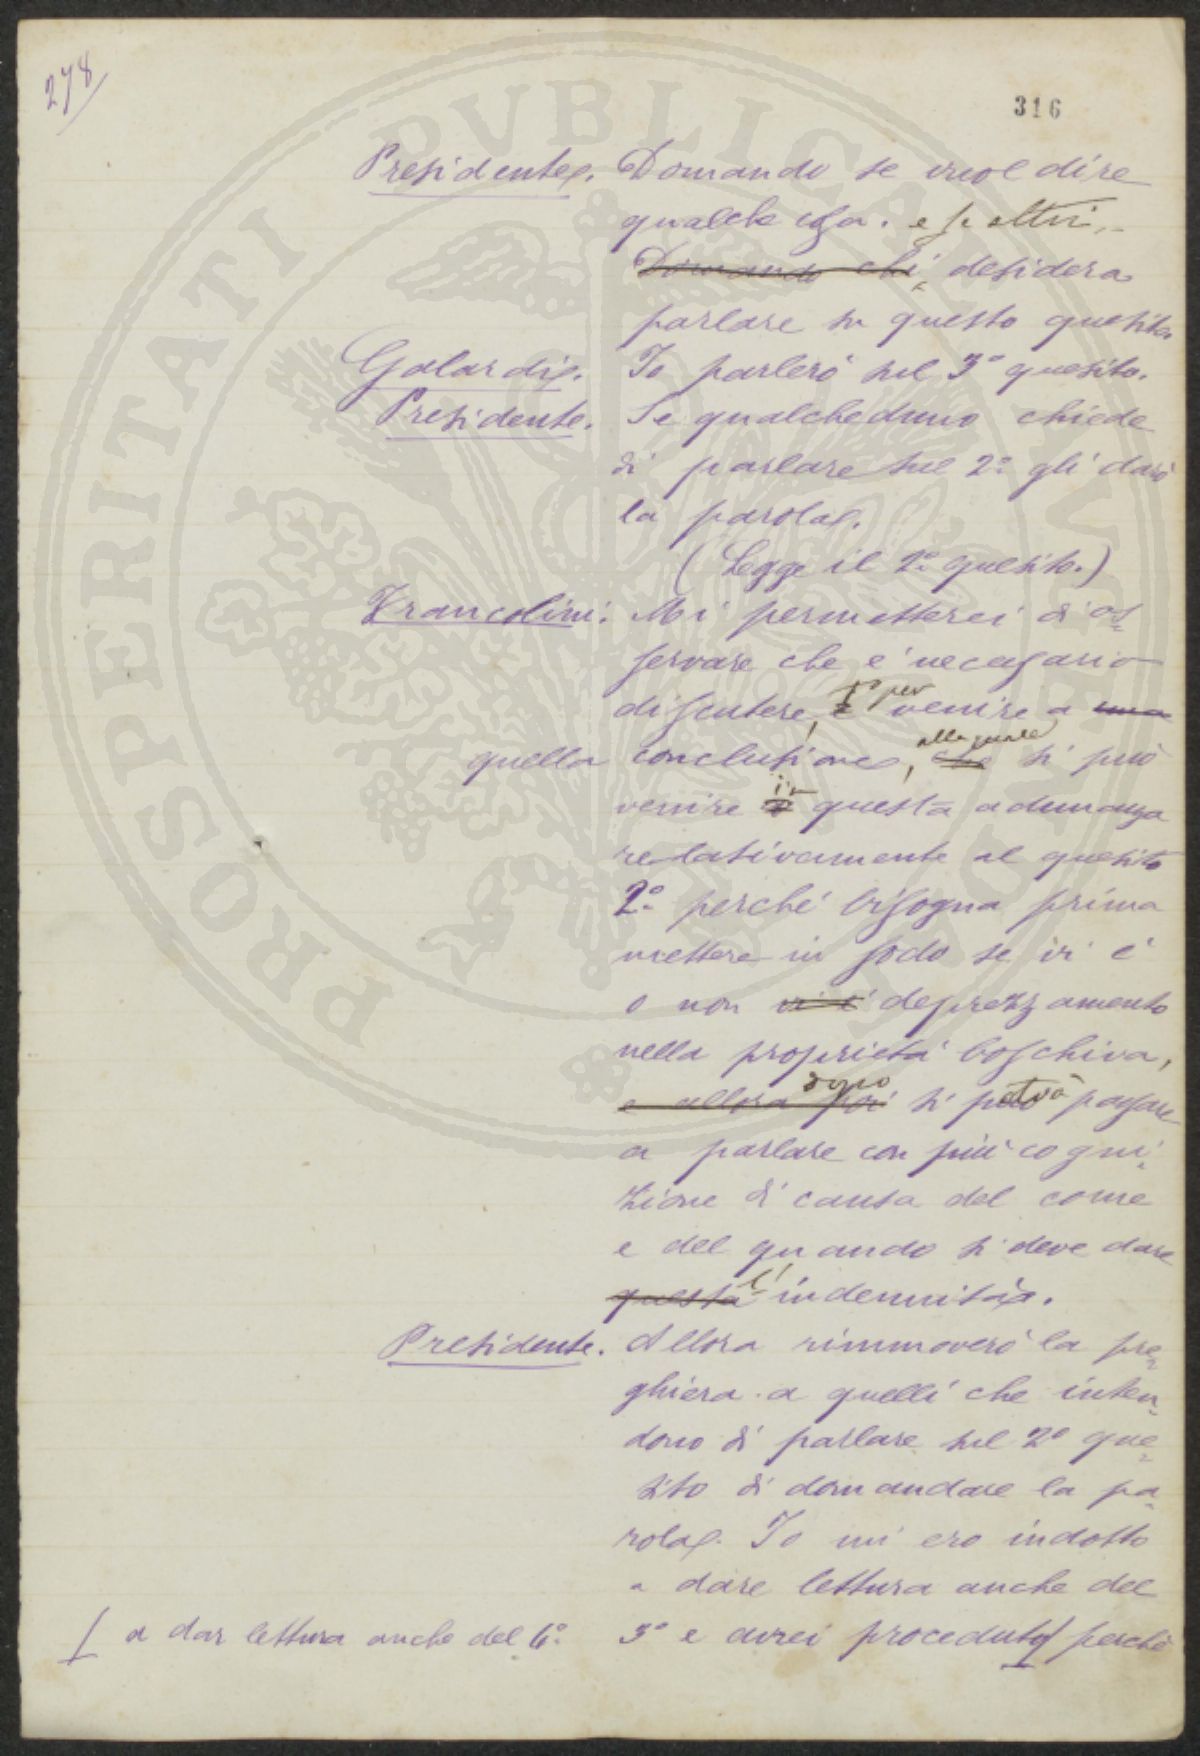 278
316
PROSPERITATI PVBLICAE
Presidente. Domando se vuol dire
qualche cosa. e se altri
Domando chi desidera
parlare su questo quesito.
Galardi. Io parlerò sul 3º quesito.
Presidente. Se qualcheduno chiede
di parlare sul 2º gli darò
la parola.
(Legge il 2º quesito.)
Francolini. Mi permetterei di os-
servare che è necessario
discutere, per venire a una
quella conclusione, che alla quale si può
venire in questa adunanza
relativamente al quesito
2º perché bisogna prima
mettere in sodo se vi é
o non vi é deprezzamento
nella proprietà boschiva,
e allora poi dopo si potrà passare
a parlare con più cogni-
zione di causa del come
e del quando si deve dare
questa l'indennità.
Presidente. Allora rinnoverò la pre-
ghiera a quelli che inten-
dono di parlare sul 2º que-
sito di domandare la pa-
rola. Io mi ero indotto
a dare lettura anche del
3º e avrei proceduto perchè
a dar lettura anche del 4º